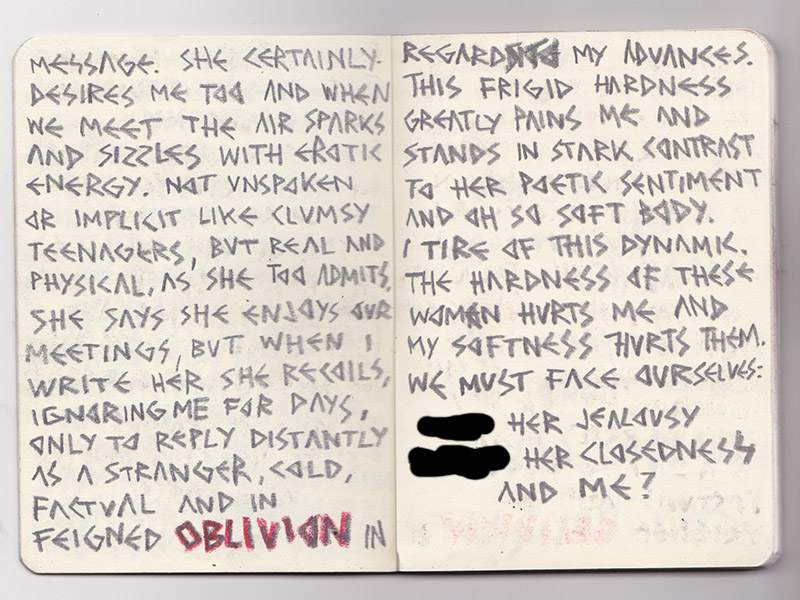 MESSAGE. SHE CERTAINLY
DESIRES ME TOO AND WHEN
WE MEET THE AIR SPARKS
AND SIZZLES WITH EROTIC
ENERGY. NOT UNSPOKEN
OR IMPLICIT LIKE CLUMSY
TEENAGERS, BUT REAL AND
PHYSICAL, AS SHE TOO ADMITS,
SHE SAYS SHE ENJOYS OUR
MEETINGS, BUT WHEN I
WRITE HER SHE RECOILS,
IGNORING ME FOR DAYS,
ONLY TO REPLY DISTANTLY
AS A STRANGER, COLD,
FACTUAL AND IN
FEIGNED OBLIVION IN
REGARD MY ADVANCES.
THIS FRIGID HARDNESS
GREATLY PAINS ME AND
STANDS IN STARK CONTRAST
TO HER POETIC SENTIMENT
AND OH SO SOFT BODY.
I TIRE OF THIS DYNAMIC.
THE HARDNESS OF THESE
WOMEN HURTS ME AND
MY SOFTNESS HURTS THEM.
WE MUST FACE OURSELVES:
HER JEALOUSY
HER CLOSEDNESS
AND ME?